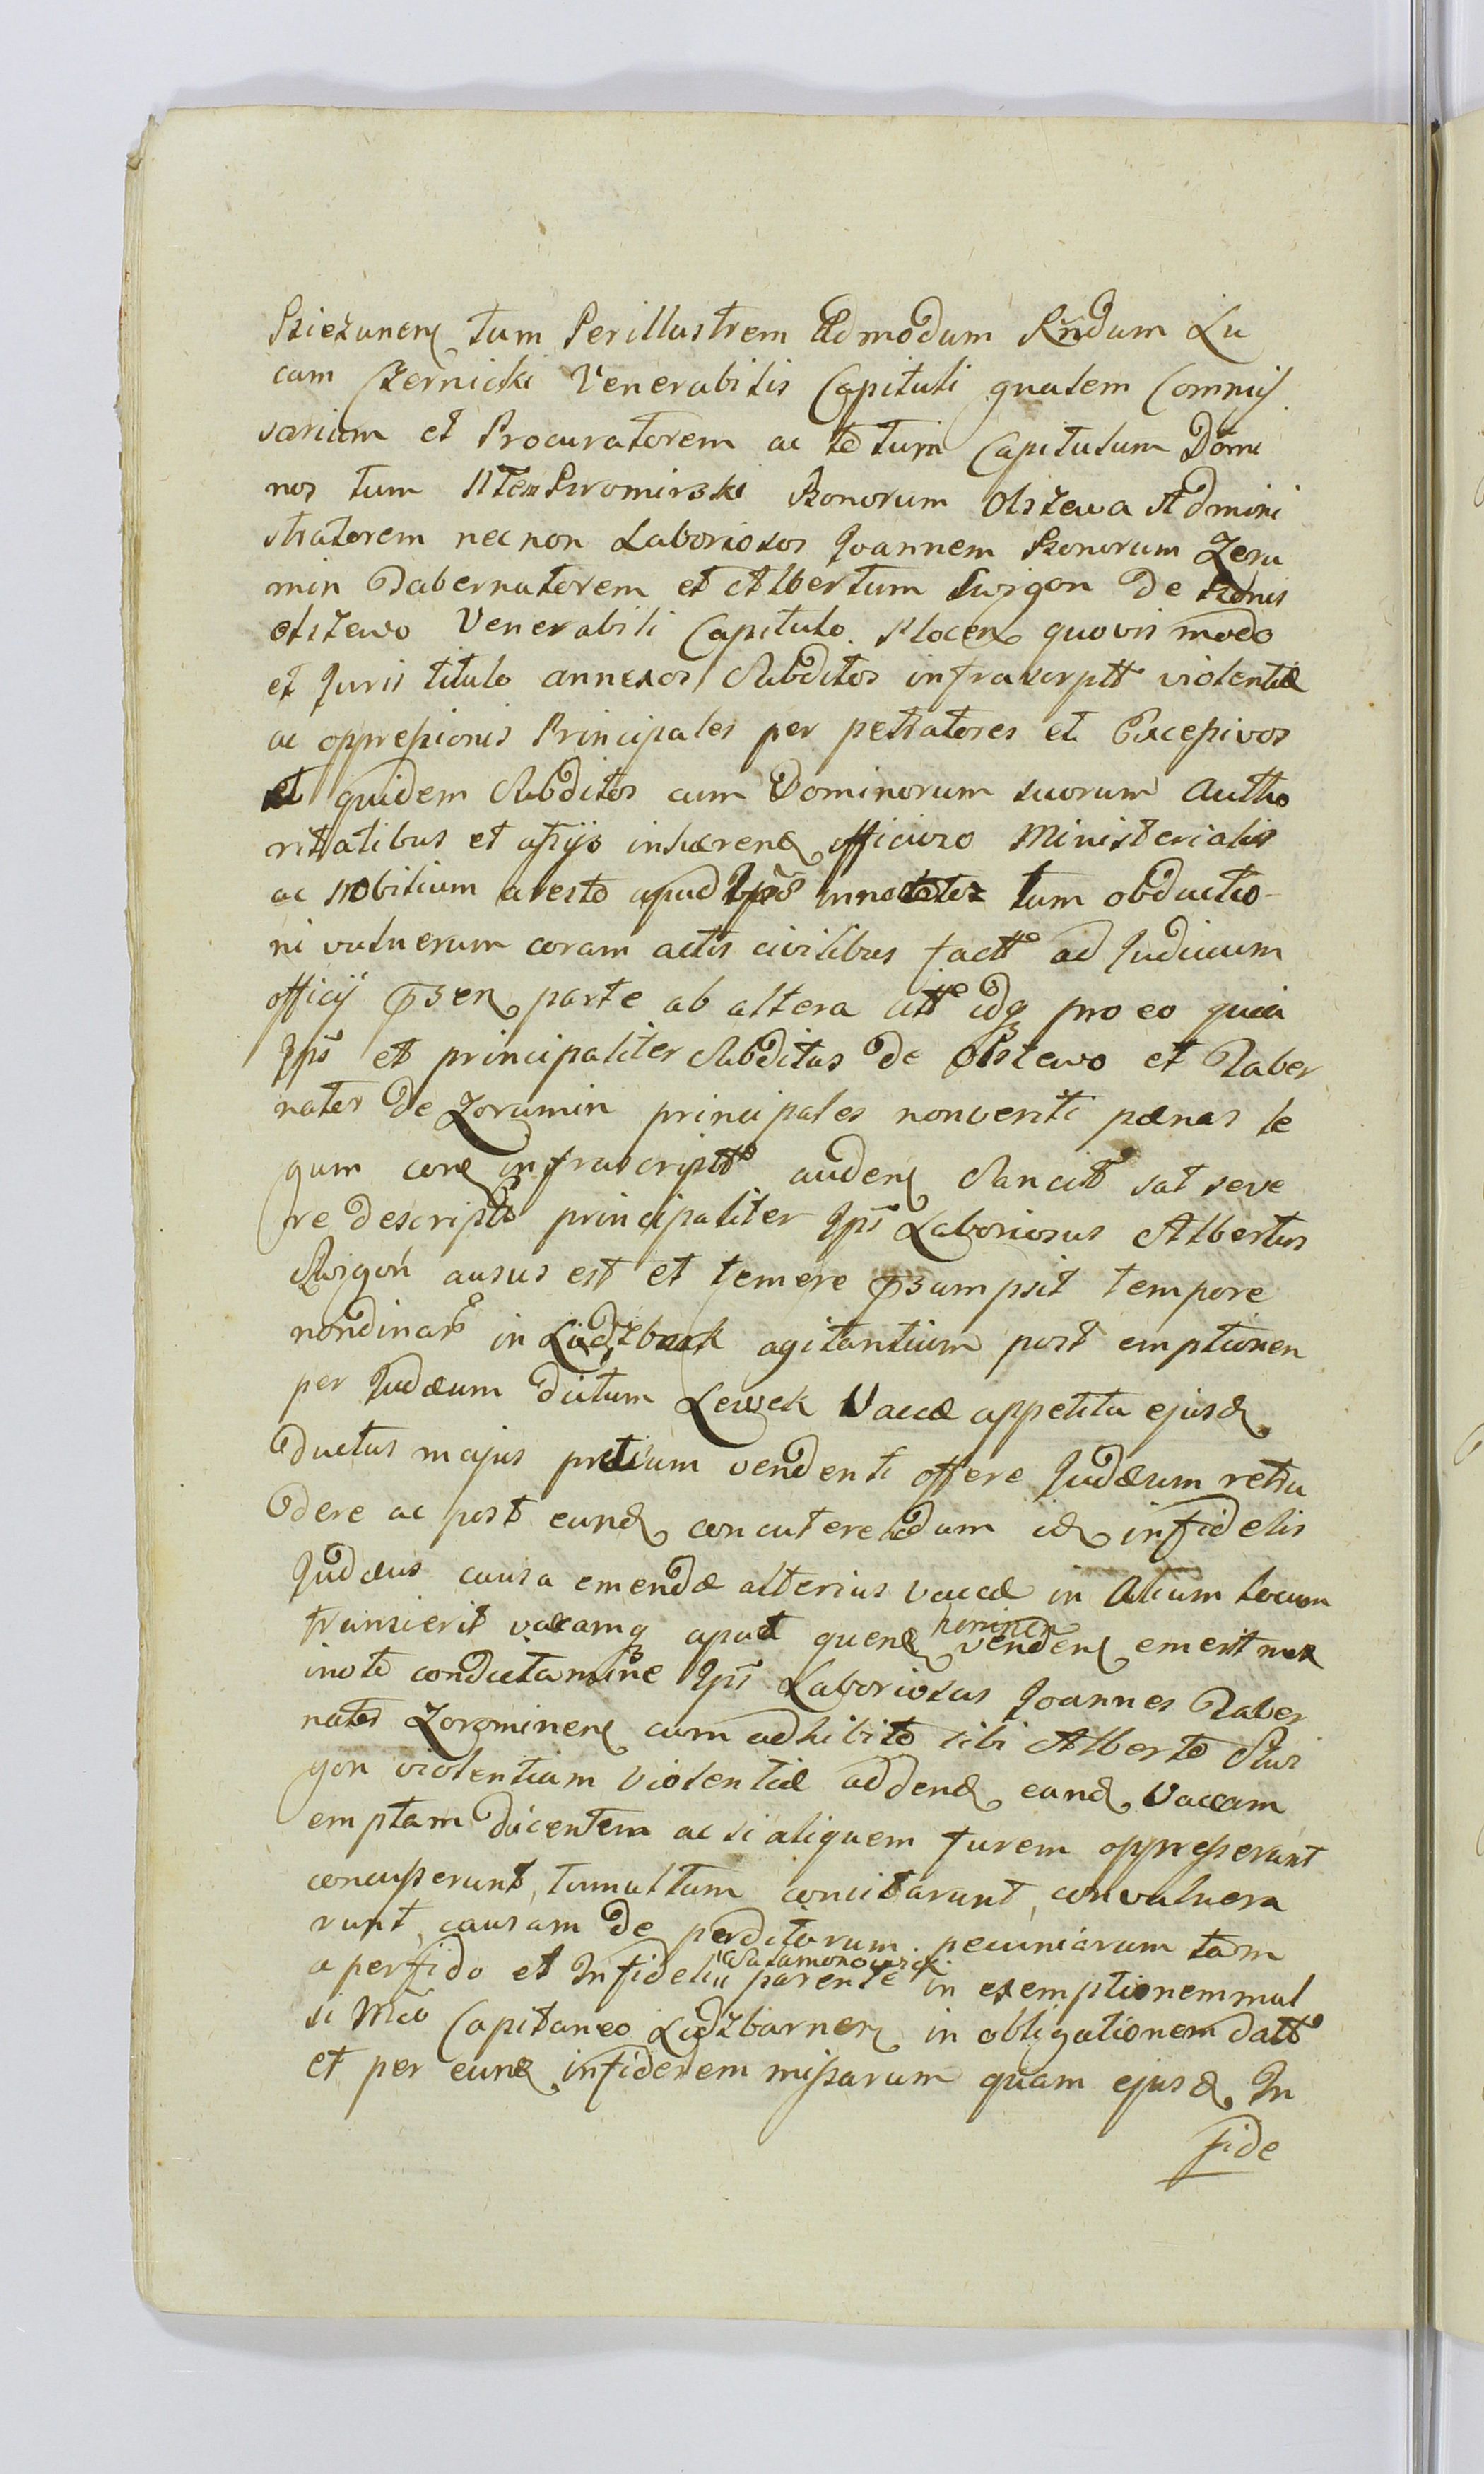 Bieżunen tum Perillustrem Admodum Rndum Lu
cam Czernicki Venerabilis Capituli qualem Commis
sarium et Procuratorem ac totum Capitulum Domi
nos tum Bonorum Olszewa Admini
stratorem nec non Laboriosos Joannem Bonorum Zeru
min Tabernatorem et Albertum Swigon de Bonis
Olszewo Venerabili Capitulo Plocen quovis modo
et Juris titulo annexos Subditos infrascrptt violentiæ
ac oppressionis Principales perpetratores et Excessivos
et quidem Subditos cum Dominorum suorum Autho
ritatibus et inhæren officioso Ministerialis
ac Nobilium aresto apud Ipsos tum obductio-
ni vulnerum coram actis civilibus factt ad Judicium
officii pnsen parte ab altera citt idq pro eo quia
Ips et principaliter Subditus de Olszewo et Taber
nator de Zorumin principales non veriti pœnas le
gum con infrascriptt auden Sancitt sat seve
re descriptt principaliter Ips Laboriosus Albertus
Swigoń ausus est et temere pnsumpsit tempore
nondinar in Lidzbark agitantium post emptionen
per Judæum dictum Lewek Vaccæ appetitu ejusd
ductus majus pretium vendenti offere Judæum retru
dere ac post eund concutere dum id infidelis
Judæus causa emendæ alterius vaccæ in Alium locum
transierit vaccamq apud quend hominem venden emerit
inde Ips Laboriosus Joannes Taber
nator Zorominen cum adhibito sibi Alberto Swi
gon violentiam violentiæ addend eand Vaccam
emptam ducentem ac si aliquem furem oppresserant
concusserunt, tumultum concitarunt, convulnera
runt, causam deperditarum pecuniarum tam
a perfido et Infideli Salamonowicz parente in exemptionem mul
si Mco Capitaneo Lidzbarnen in obligationem datt
et per eund infidelem missarum quam ejusd In
fide